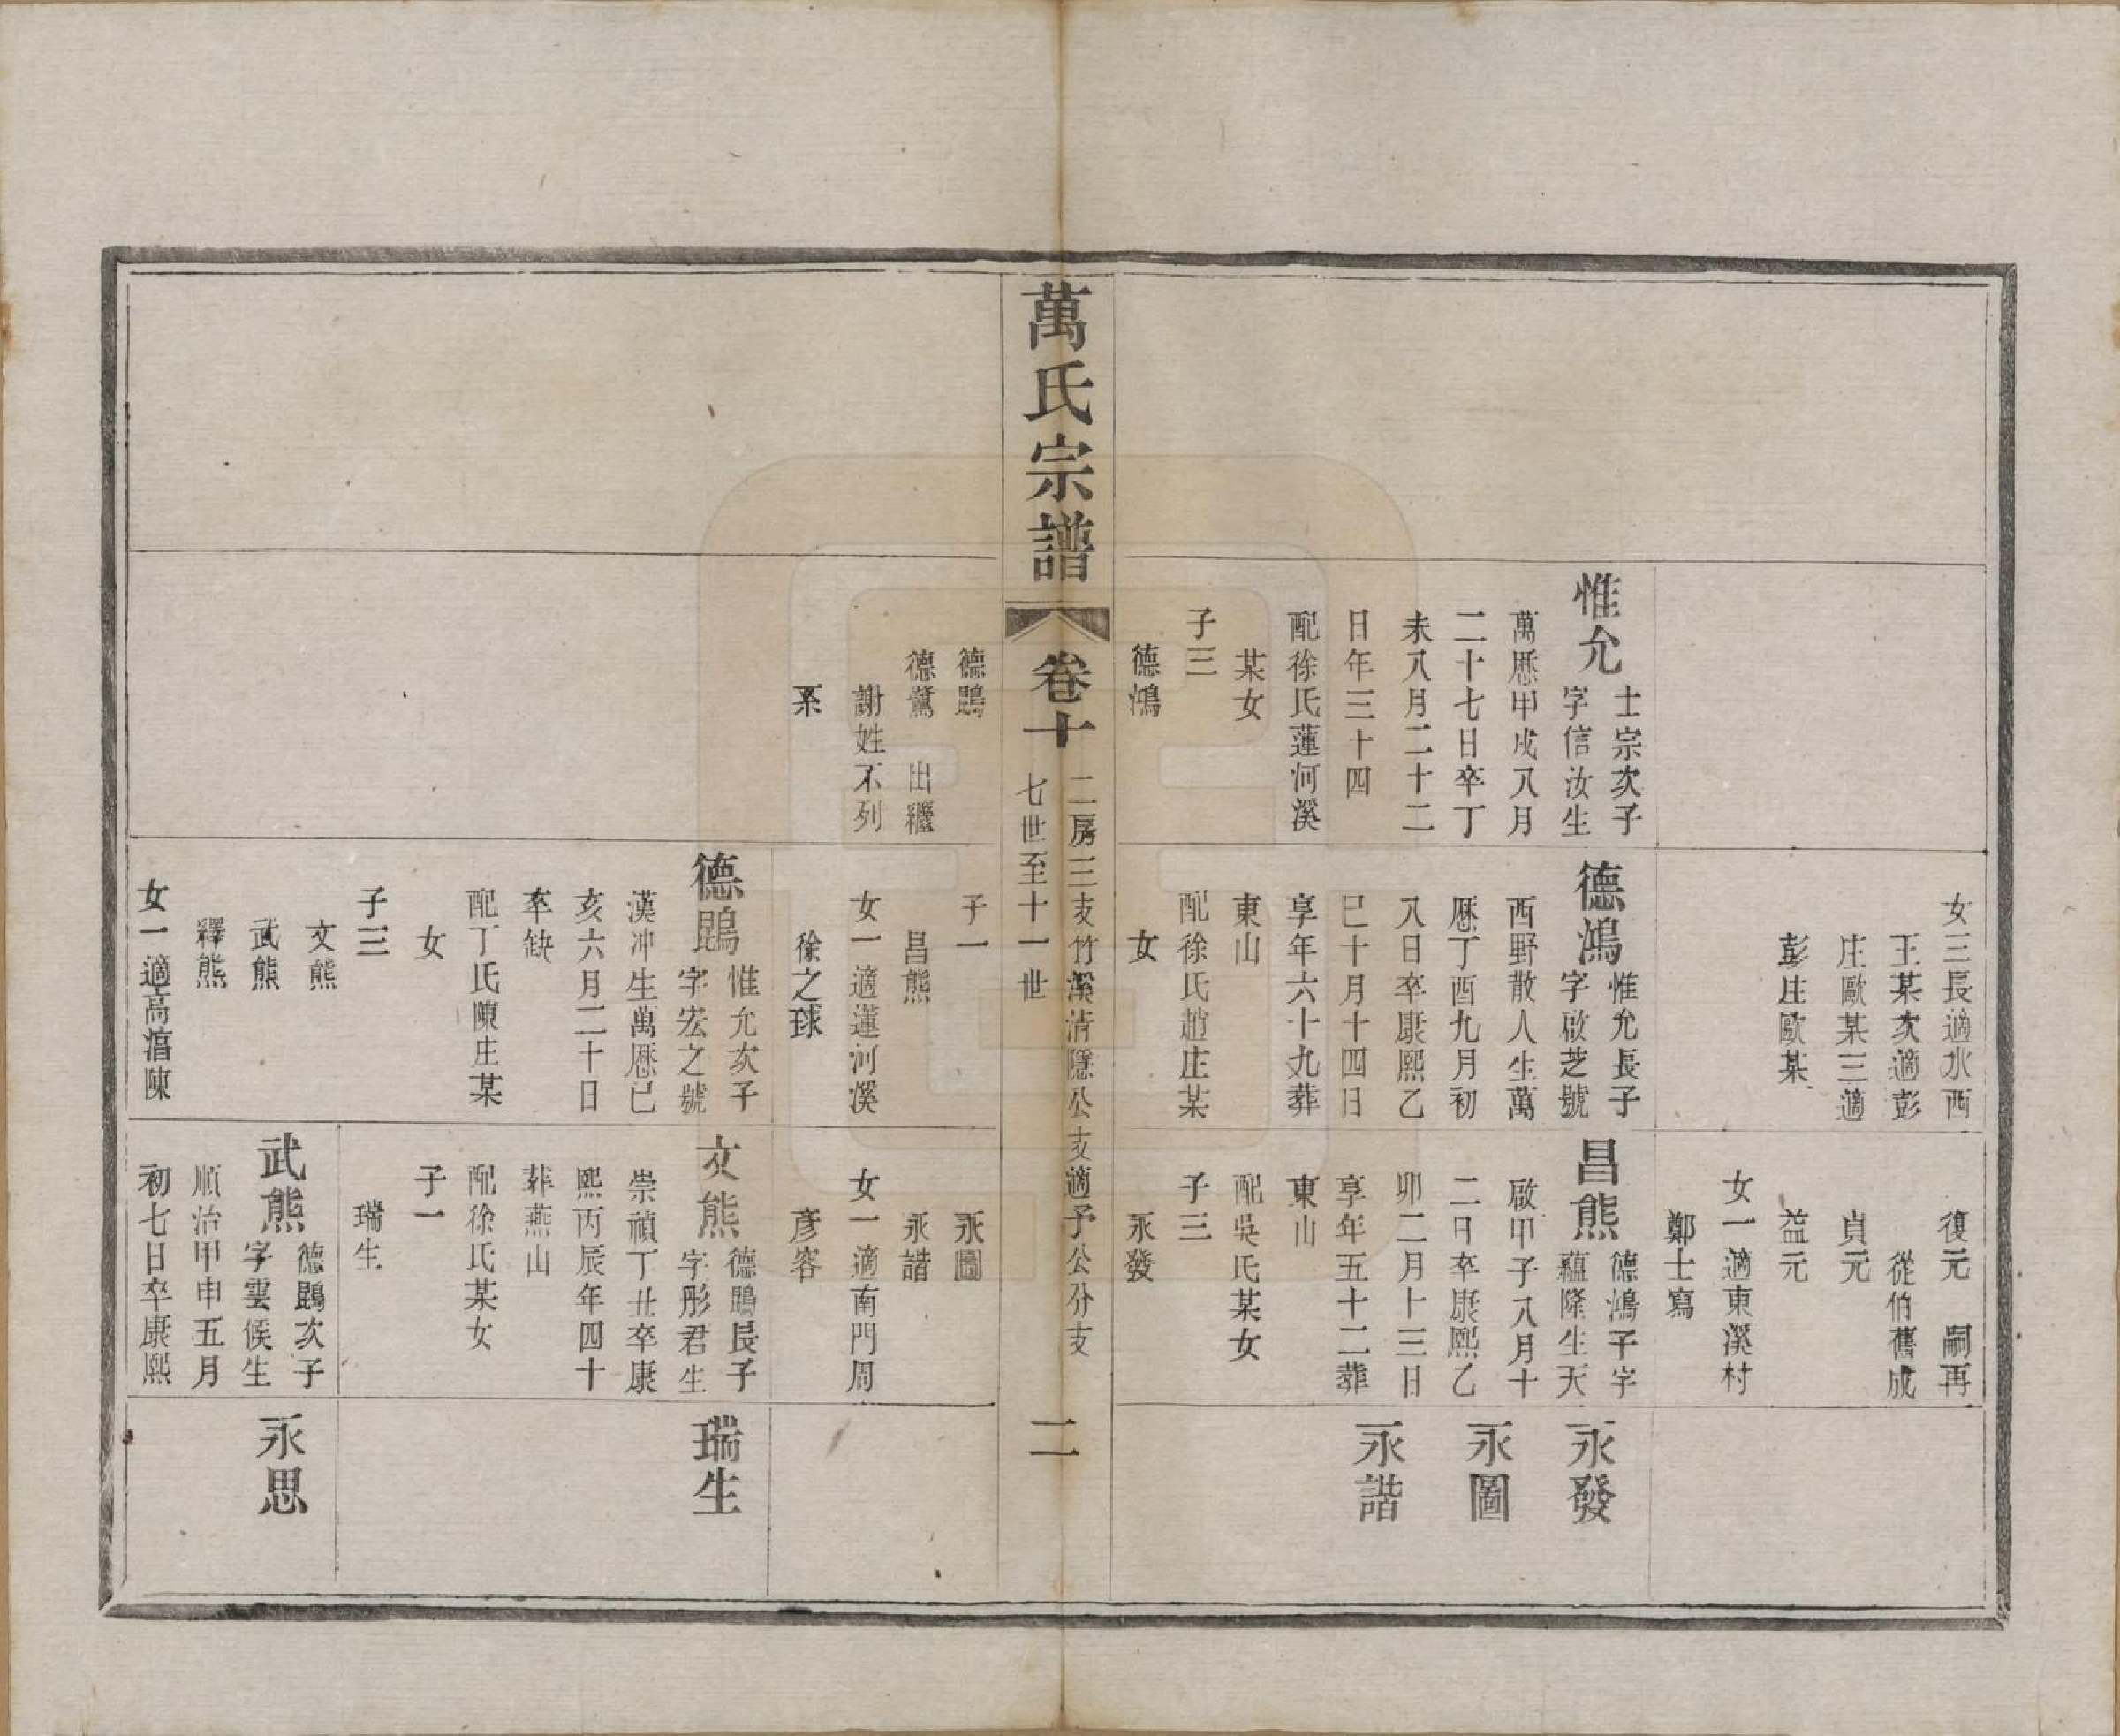 女三長適水西
王某次適彭
庄歐某三適
彭庄歐某
復元 嗣再
從伯舊成
貞元
益元
女一適東溪村
鄭士寫
惟允
士宗次子
字信汝生
萬厯甲戌八月
二十七日卒丁
未八月二十二
日年三十四
配徐氏蓮河溪
某女
子三
德鴻
德鴻
惟允長子
字啟芝號
西野散人生萬
厯丁酉九月初
八日卒康熙乙
巳十月十四日
享年六十九葬
東山
配徐氏趙庄某
女
昌熊
德鴻子字
蘊隆生天
啟甲子八月十
二日卒康熙乙
卯二月十三日
享年五十二葬
東山
配吳氏某女
子三
永發
永發
永圖
永諧
萬氏宗譜
卷十
二房三支竹溪清隱公支適予公分支
七世至十一世
二
德鵾
德鸞 出繼
謝姓不列
系
子一
昌熊
女一適蓮河溪
徐之球
永圖
永諧
女一適南門周
彦容
德鵾
惟允次子
字宏之號
漢冲生萬厯己
亥六月二十日
卒缺
配丁氏陳庄某
女
子三
文熊
武熊
釋熊
女一適高湻陳
文熊
德鵾長子
字彤君生
崇禎丁丑卒康
熙丙辰年四十
葬燕山
配徐氏某女
子一
瑞生
瑞生
武熊
德鵾次子
字雲候生
順治甲申五月
初七日卒康熙
永思